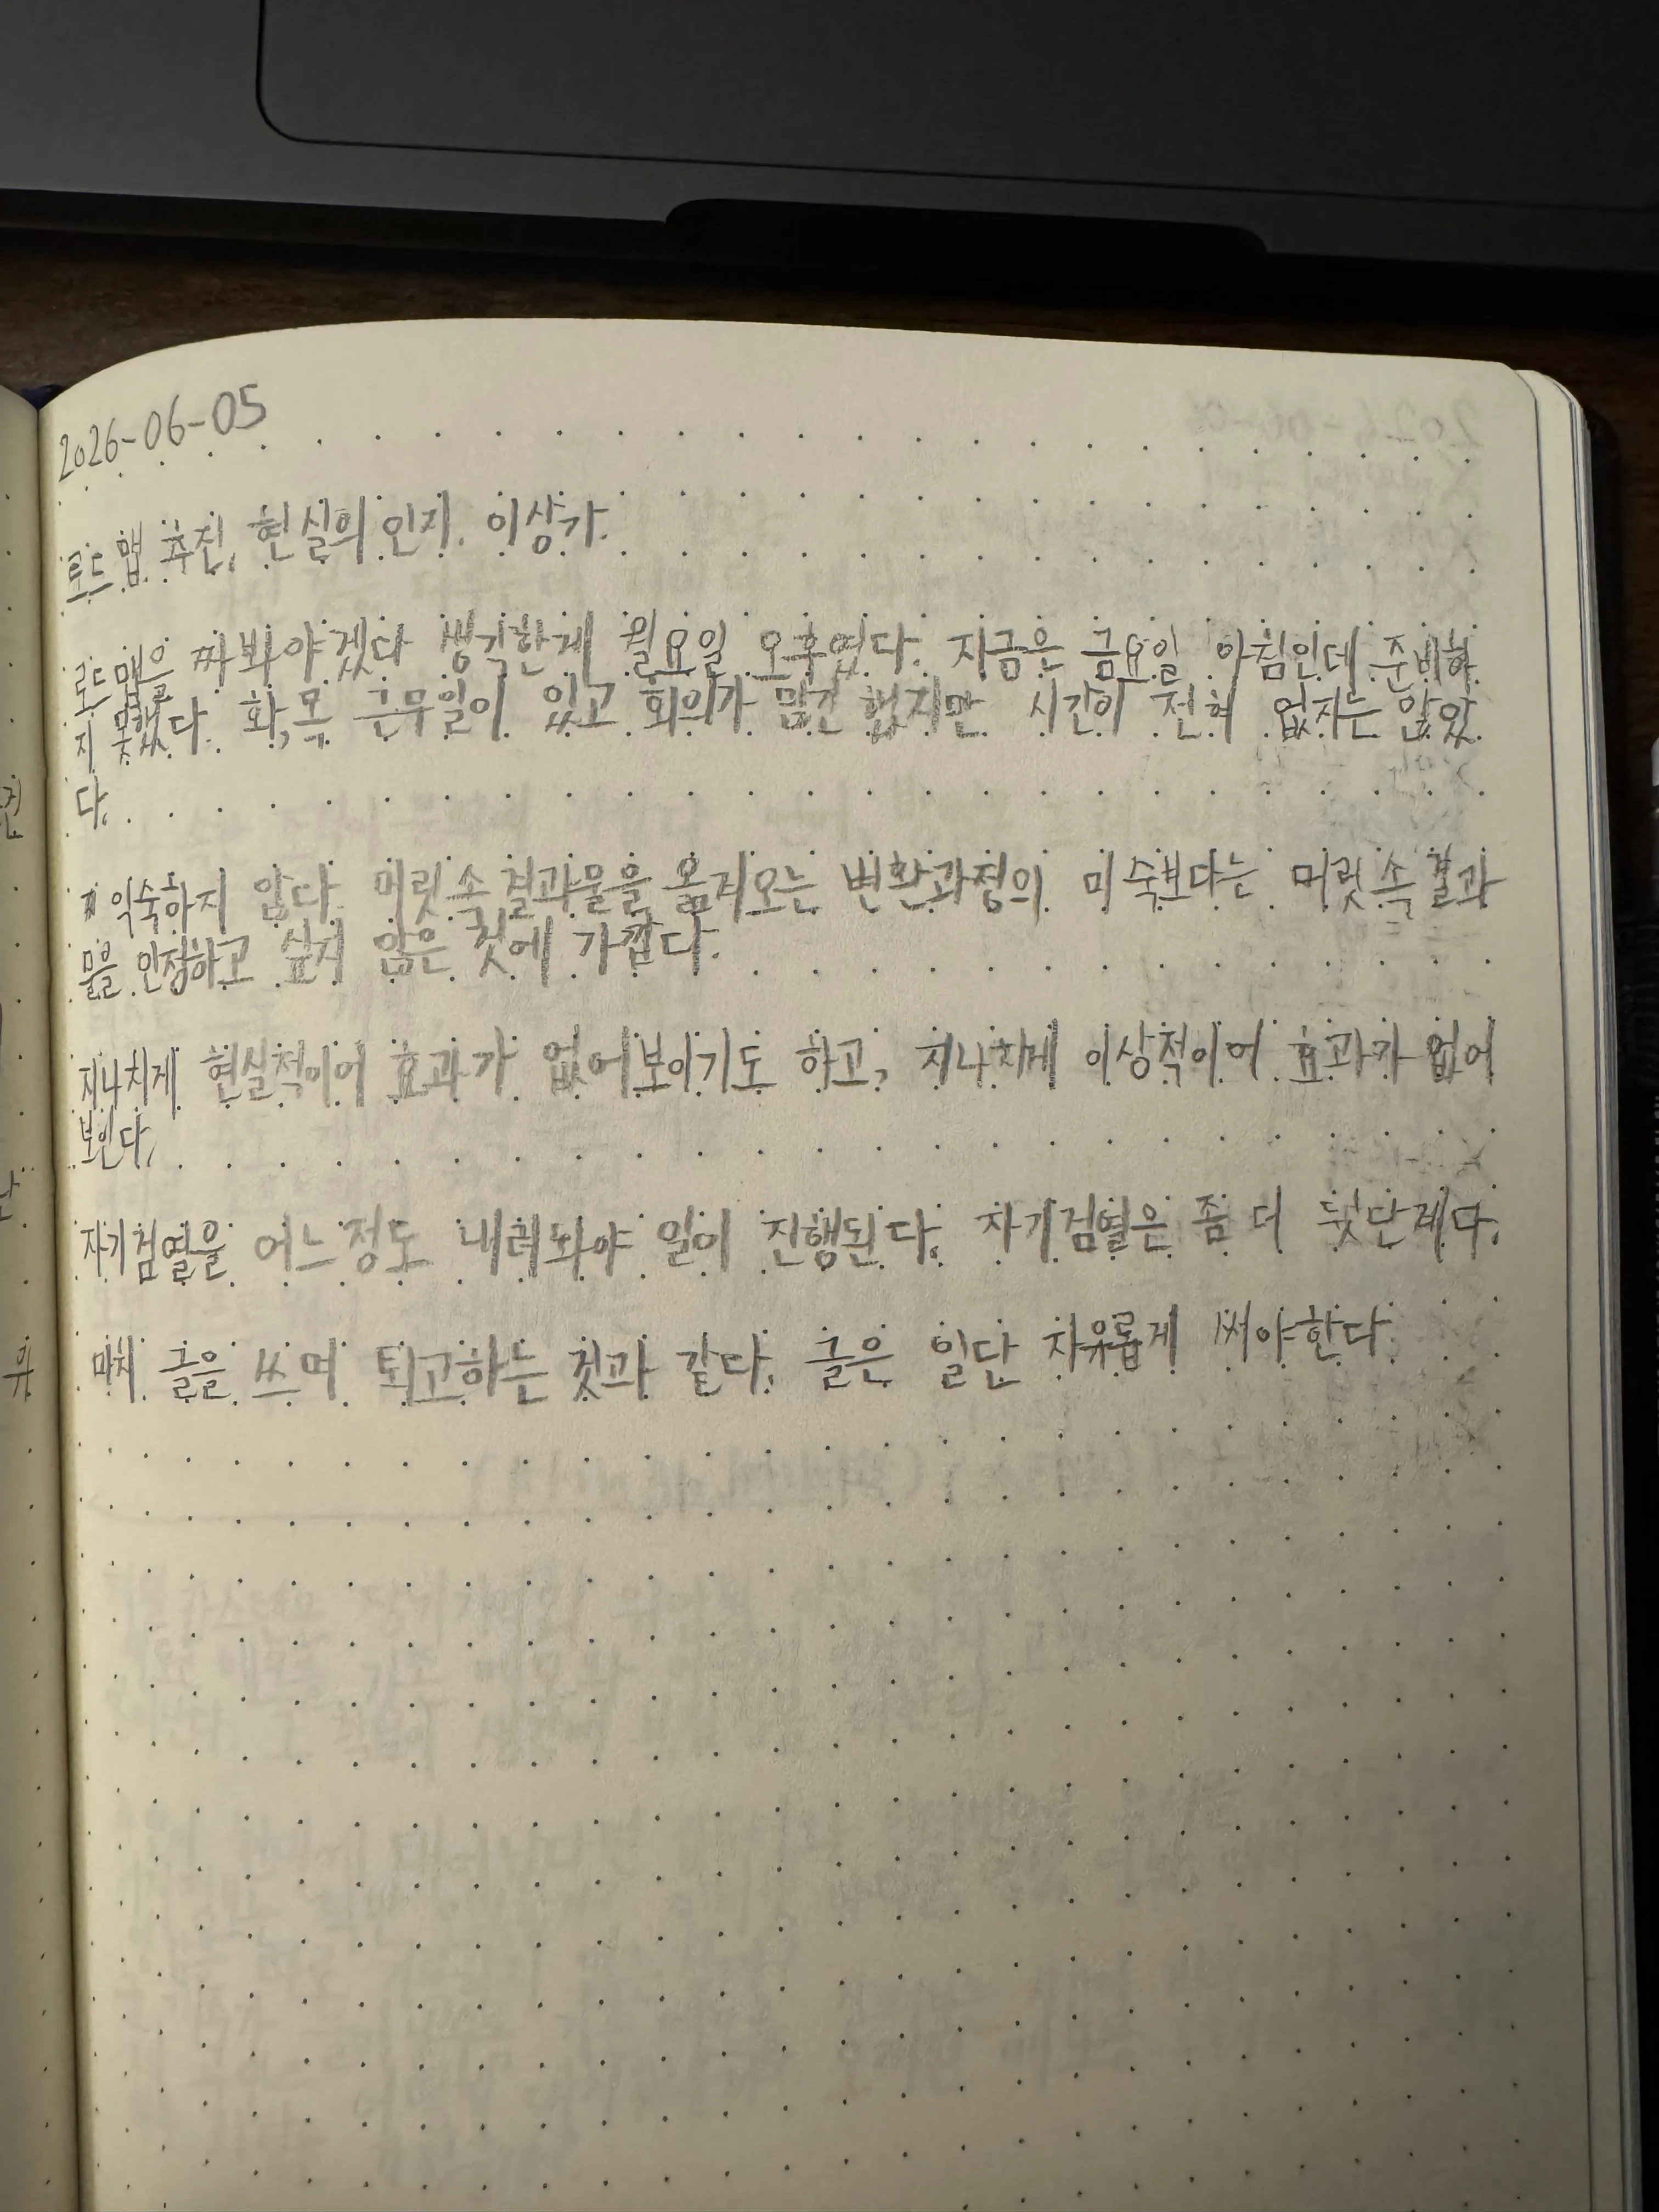 2026-06-05
로드맵 추진. 현실의 인지. 이상가.
로드맵을 짜봐야겠다 생각한게 월요일 오후였다. 지금은 금요일 아침인데 준비하
지 못했다. 화,목 근무일이 있고 회의가 많긴 했지만 시간이 전혀 없지는 않았
다.
익숙하지 않다. 머릿속 결과물을 옮겨오는 변환과정의 미숙보다는 머릿속 결과
물을 인정하고 싶지 않은 것에 가깝다.
지나치게 현실적이어 효과가 없어보이기도 하고, 지나치게 이상적이어 효과가 없어
보인다.
자기검열을 어느정도 내려놔야 일이 진행된다. 자기검열은 좀 더 뒷단계다.
마치 글을 쓰며 퇴고하는 것과 같다. 글은 일단 자유롭게 써야한다.